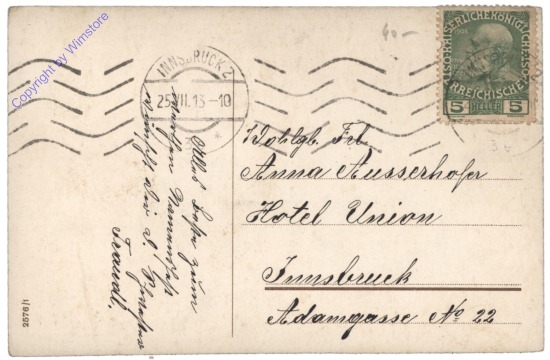 Copyright by Wimstore
INNSBRUCK 2
25.VII.13-10
40-
KAISERLICHE KÖNIGLICHE ÖSTERREICHISCHE POST
5 HELLER 5
Alles Gute zum
heutigen Namensfeste
wünscht dir d.
Traudl.
Wohlgb. Frl.
Anna Ausserhofer
Hotel Union
Innsbruck
Adamgasse No 22
2576/1